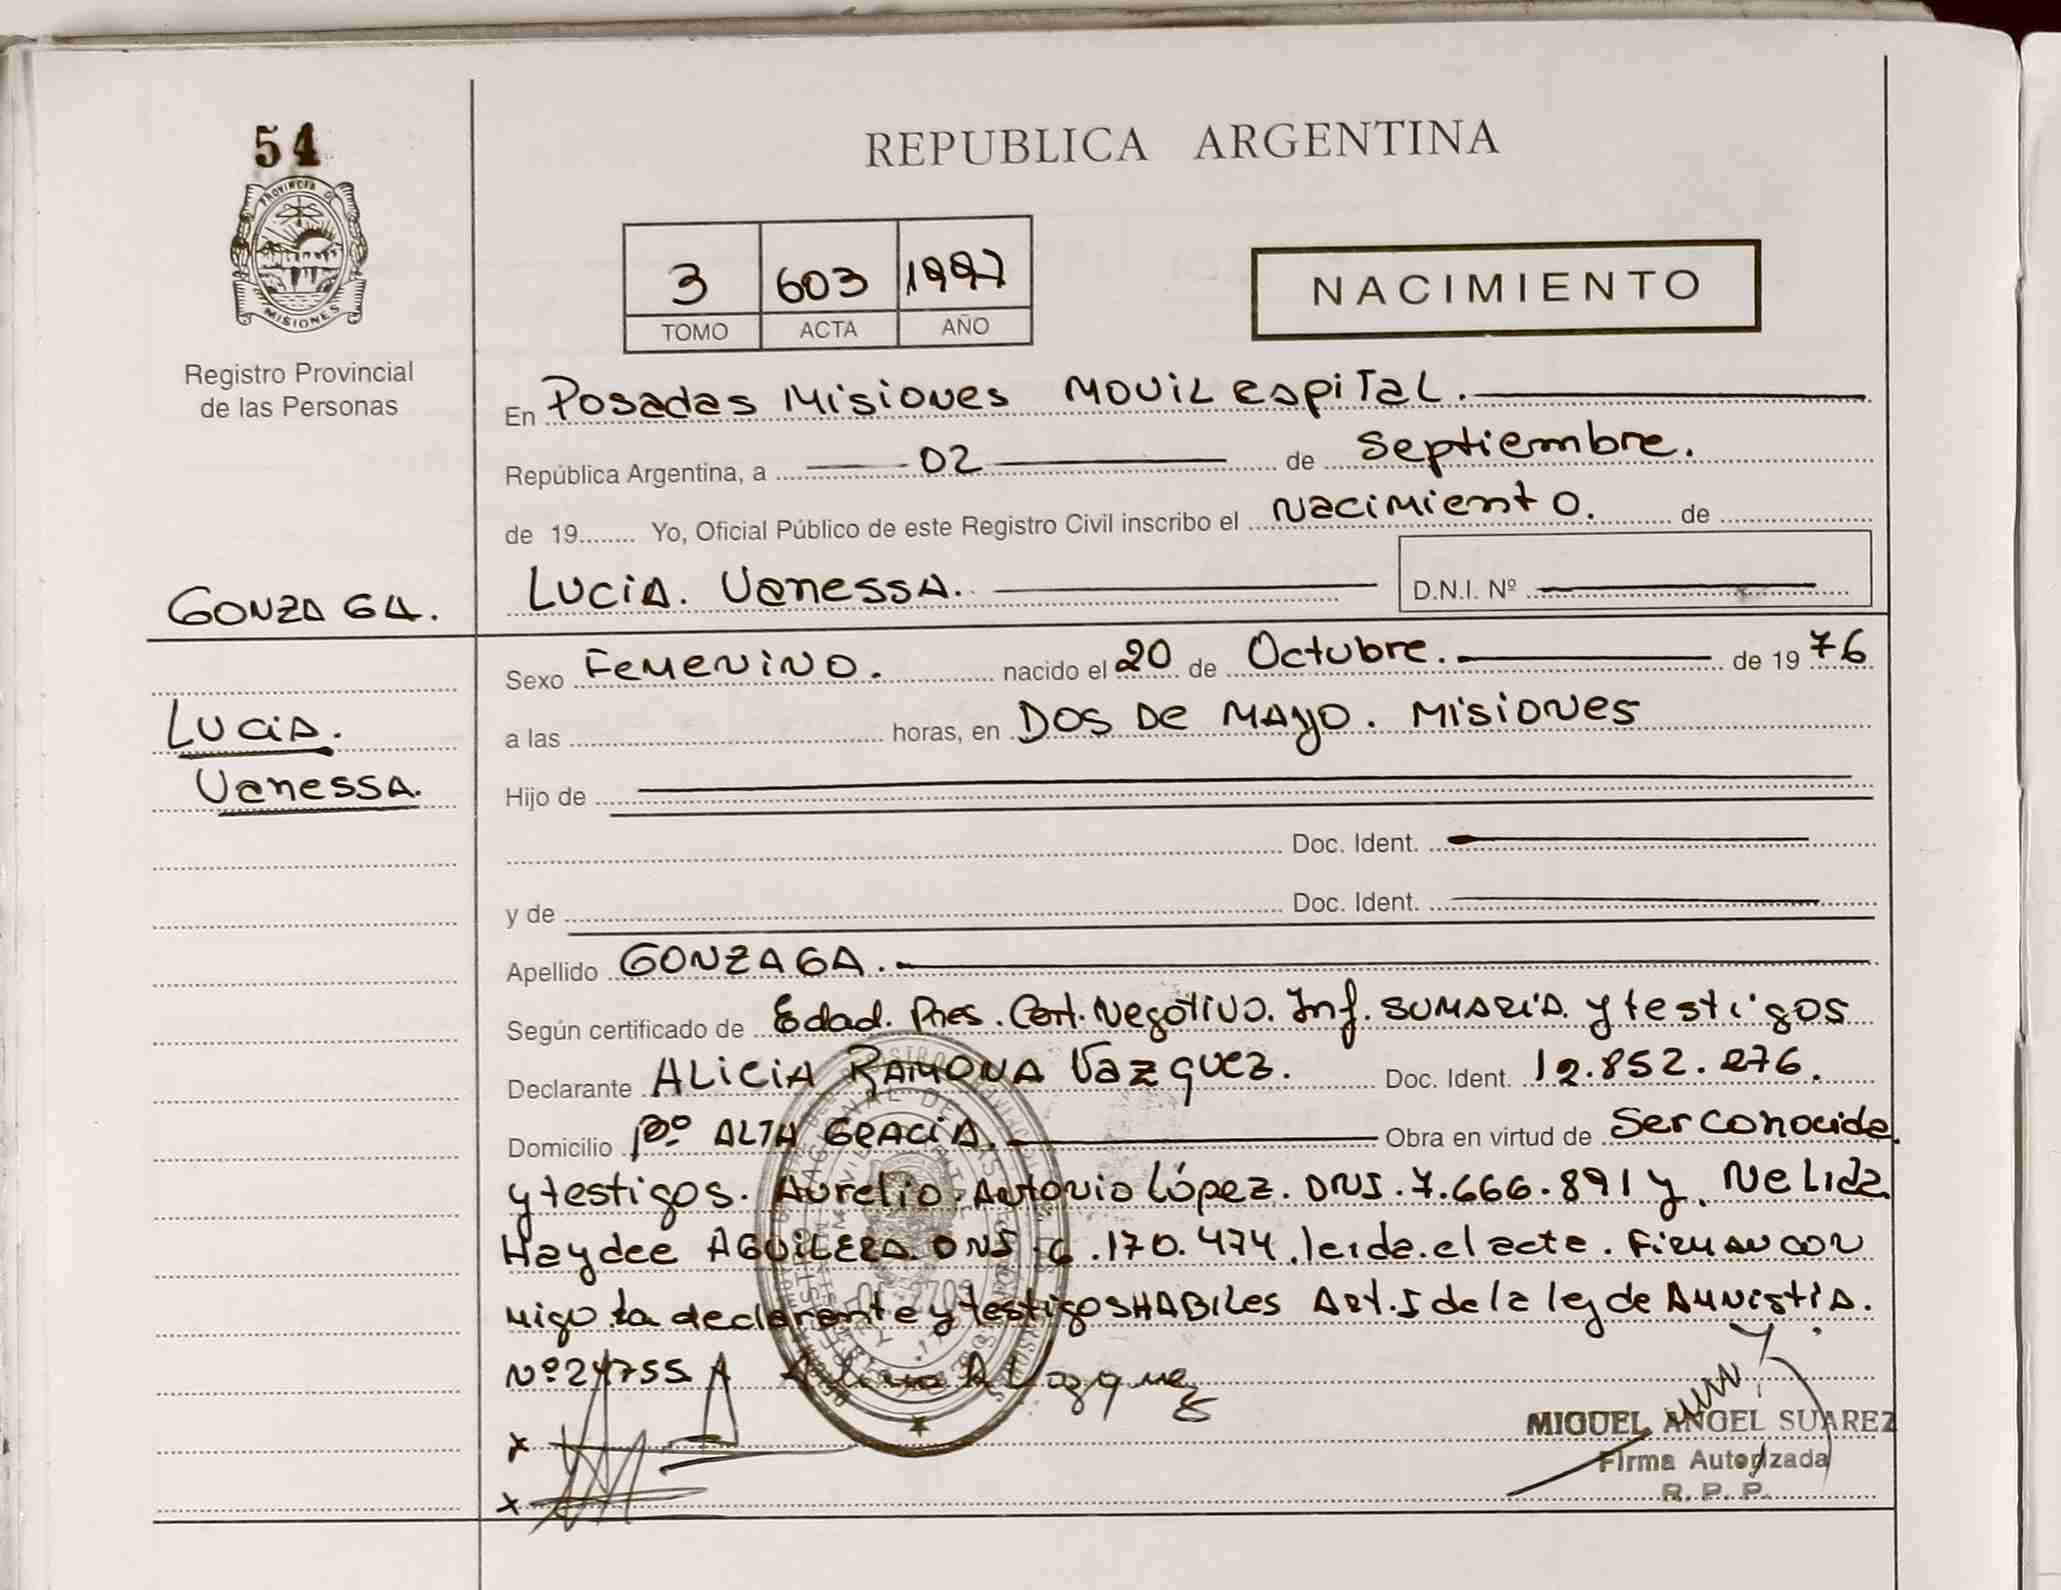 54
PROVINCIA DE
MISIONES
Registro Provincial
de las Personas
REPUBLICA ARGENTINA
3 603 1997
TOMO ACTA AÑO
NACIMIENTO
En Posadas Misiones MOVIL espiTal.
República Argentina, a 02 de Septiembre.
de 19........ Yo, Oficial Público de este Registro Civil inscribo el Nacimiento. de
GONZAGA. Lucia. Vanessa. D.N.I. Nº
Sexo Femenino. nacido el 20 de Octubre. de 19 76
Lucia. a las horas, en DOS De MAyo. Misiones
Vanessa. Hijo de
Doc. Ident.
y de Doc. Ident.
Apellido GONZAGA.
Según certificado de Edad. Pres. Cert. Negativo. Inf. SUMARIA y testigos
Declarante ALiciA RAMONA Vazquez. Doc. Ident. 12.852.276.
Domicilio Bº ALTA GRACIA. Obra en virtud de Ser conocida
y testigos. Aurelio Antonio López. DNI. 7.666.891 y Nelida
Haydee AGUILERA DNI 6.170.474. leida el acta. Firman con
migo la declarante y testigos HABILes Art. 5 de la ley de Amnistia.
Nº 24755 Alicia R Vazquez
x
MIGUEL ANGEL SUAREZ
Firma Autorizada
x R. P. P.